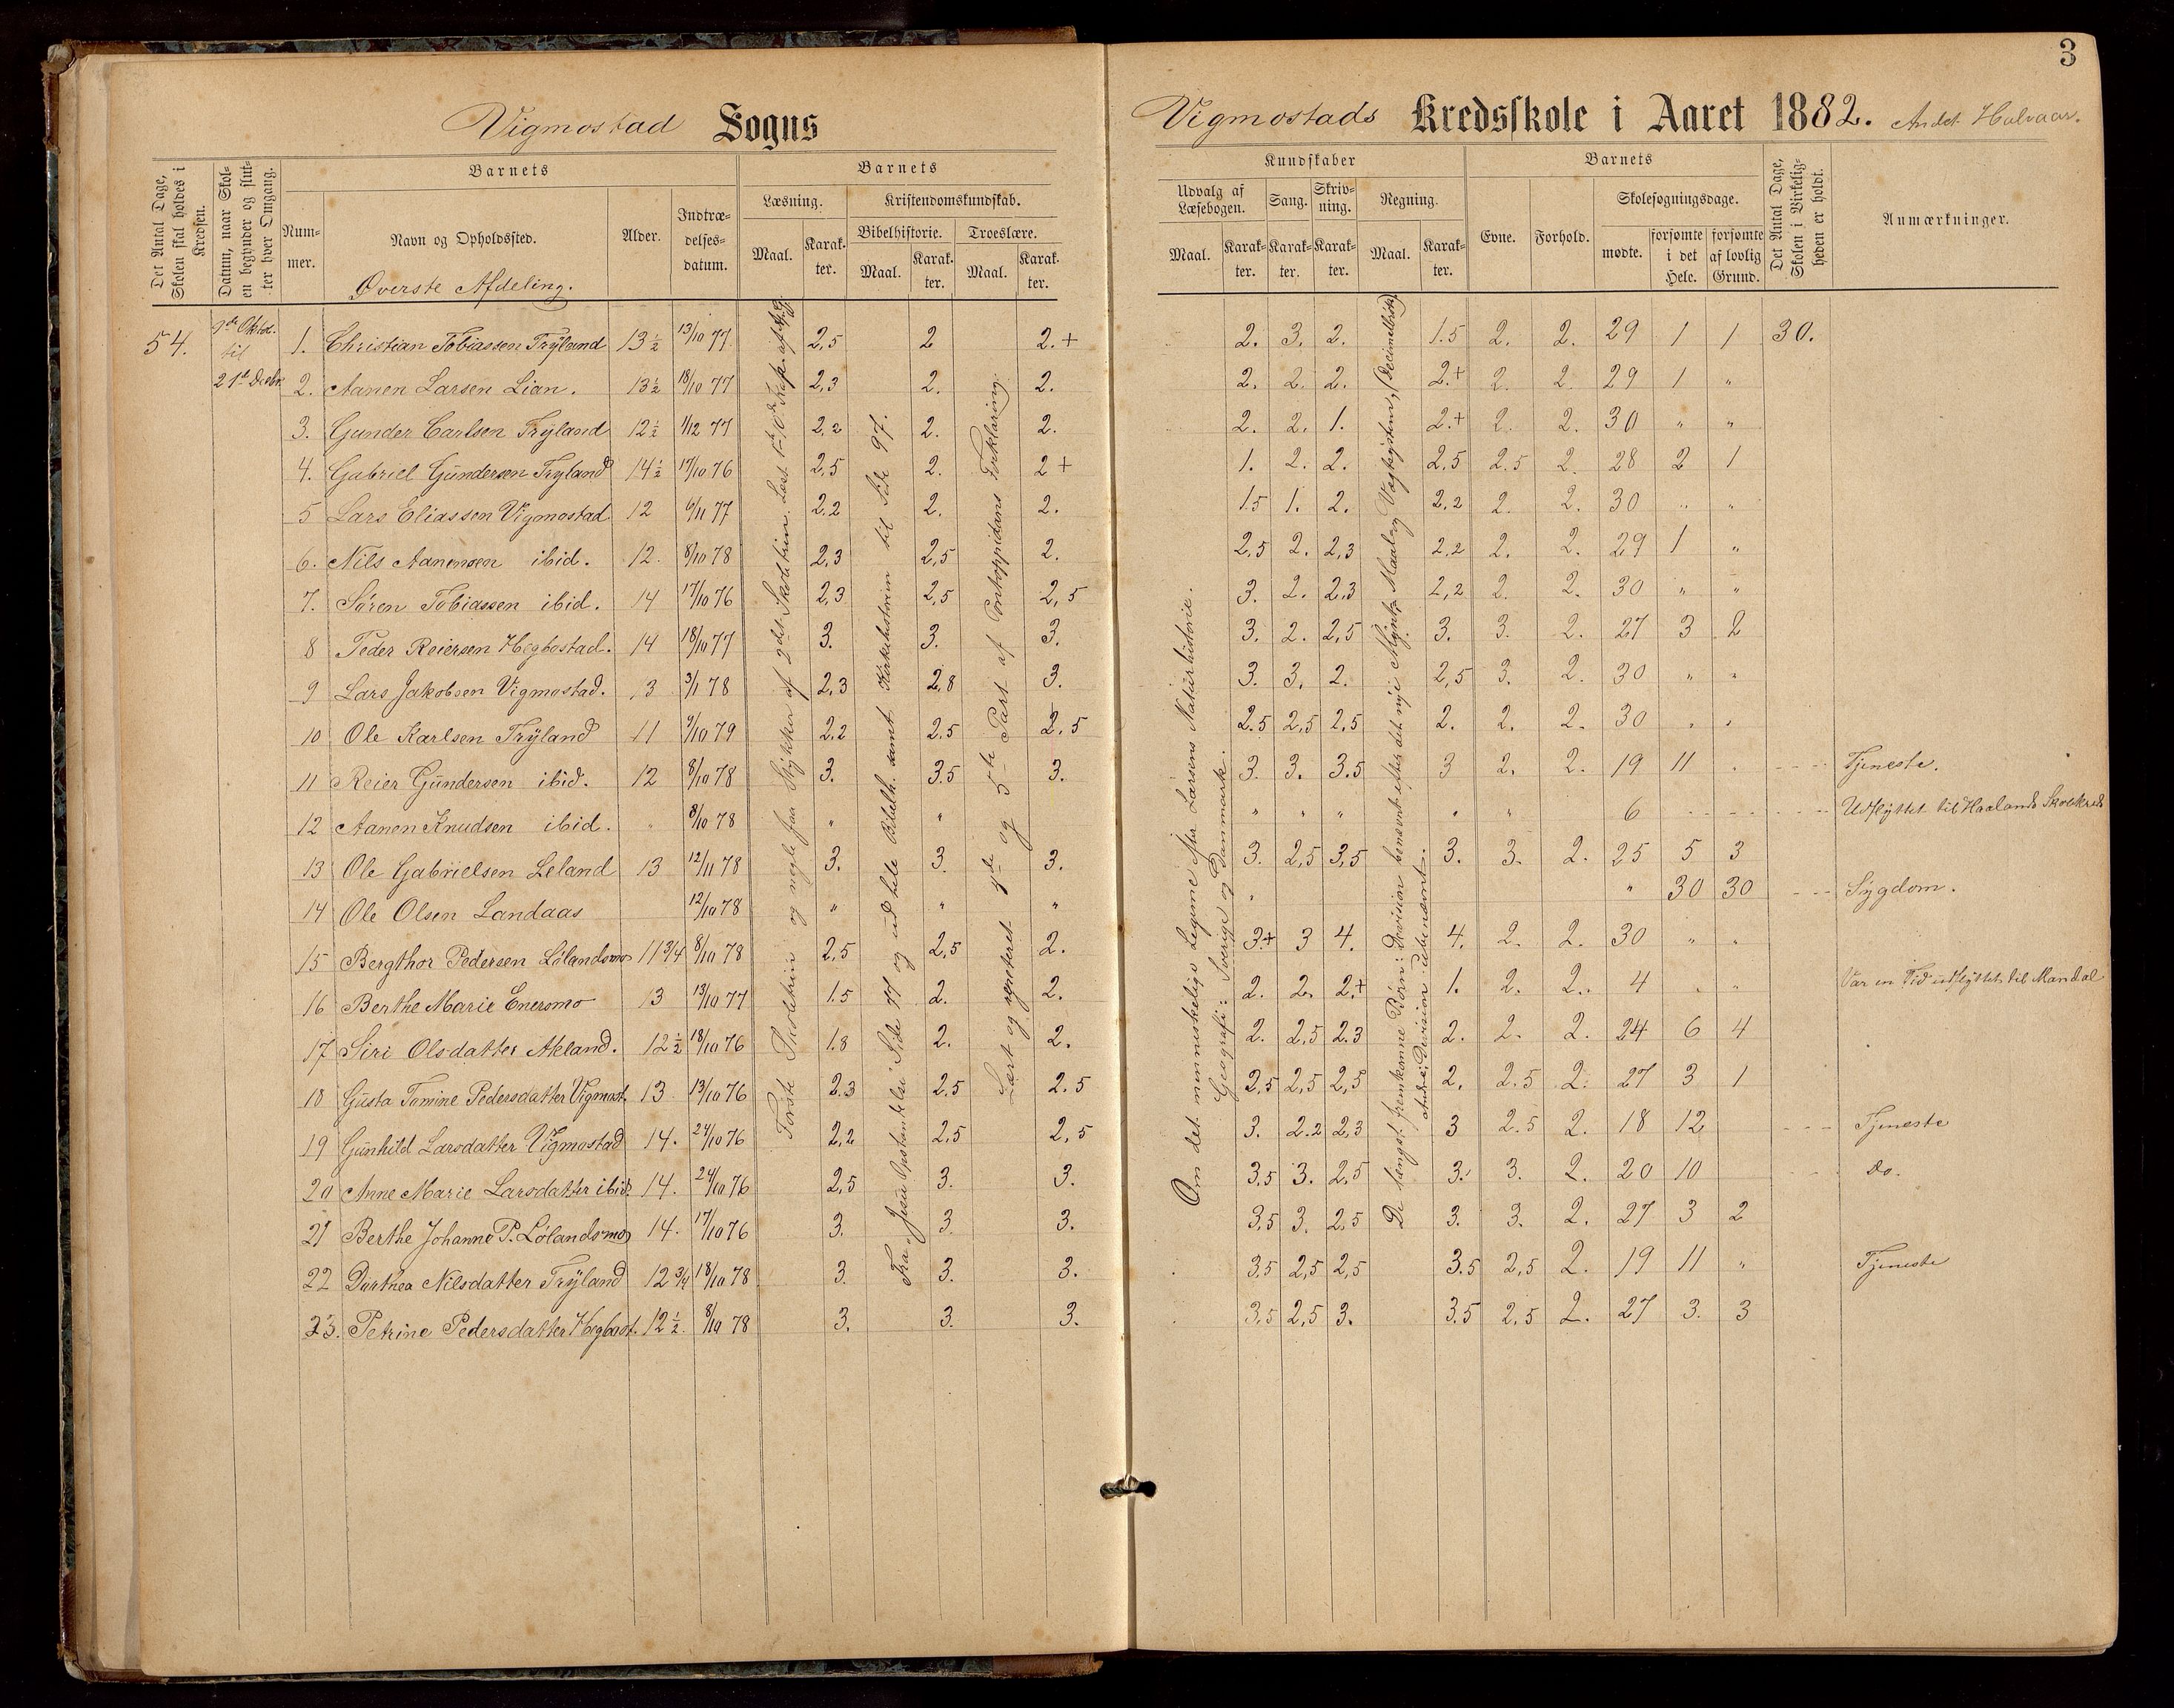 3
Vigmostad Sogns
Vigmostads Kredsskole i Aaret 1882. Andet Halvaar.
Det Antal Dage, Skolen skal holdes i Kredsen.
Datum, naar Skolen begynder og slutter hver Omgang.
Barnets
Nummer.
Navn og Opholdssted.
Øverste Afdeling.
Alder.
Indtrædelsesdatum.
Barnets
Læsning.
Maal.
Karakter.
Kristendomskundskab.
Bibelhistorie.
Maal.
Karakter.
Troeslære.
Maal.
Karakter.
Kundskaber
Udvalg af Læsebogen.
Maal.
Karakter.
Sang.
Karakter.
Skrivning.
Karakter.
Regning.
Maal.
Karakter.
Barnets
Evne.
Forhold.
Skolesøgningsdage.
mødte.
forsømte i det Hele.
forsømte af lovlig Grund.
Det Antal Dage, Skolen i Virkeligheden er holdt.
Anmærkninger.
54.
til
1. Christian Tobiassen Trÿland 13½ 13/10 77 2,5 2 2.+ 2. 3. 2. 1.5 2. 2. 29 1 1 30.
2. Aanen Larsen Lian. 13½ 18/10 77 2,3 2. 2. 2. 2. 2. 2.+ 2. 2. 29 1 "
3. Gunder Carlsen Trÿland 12½ 1/12 77 2,2 2. 2. 2. 2. 1. 2.+ 2. 2. 30 " "
4. Gabriel Gündersen Trÿland 14½ 17/10 76 2,5 2. 2+ 1. 2. 2. 2,5 2.5 2. 28 2 1
5 Lars Eliassen Vigmostad 12 6/11 77 2.2 2. 2. 1.5 1. 2. 2,2 2. 2. 30 " "
6. Nils Aanensen ibid. 12. 8/10 78 2,3 2,5 2. 2,5 2. 2,3 2,2 2. 2. 29 1 "
7. Sören Tobiassen ibid. 14 17/10 76 2,3 2,5 2,5 3. 2. 2,3 2,2 2. 2. 30 " "
8 Peder Reiersen Hegbostad. 14 18/10 77 3. 3. 3. 3. 2. 2,5 3. 3. 2. 27 3 2
9 Lars Jakobsen Vigmostad. 13 3/1 78 2,3 2,8 3. 3. 3. 2. 2,5 3. 2. 30 " "
10 Ole Karlsen Trÿland 11 9/10 79 2,2 2.5 2.5 2.5 2,5 2,5 2. 2. 2. 30 " "
11 Reier Gündersen ibid. 12 8/10 78 3. 3.5 3. 3. 3. 3.5 3 2. 2. 19 11 . Tjeneste.
12 Aanen Knudsen ibid. " 8/10 78 " " " " " " " 6 Udflÿttet til Haalands Skolekreds
13 Ole Gabrielsen Leland 13 12/11 78 3. 3. 3. 3. 2,5 3,5 3. 3. 2. 25 5 3
14 Ole Olsen Landaas 12/10 78 " " " " " 30 30 Sÿgdom.
15 Bergthor Pedersen Lölandsmo 11 3/4 8/10 78 2,5 2,5 2. 3.+ 3 4. 4. 2. 2. 30 " "
16 Berthe Marie Enersmo 13 13/10 77 1.5 2. 2. 2. 2. 2.+ 1. 2. 2. 4 . " Var en Tid udflÿttet til Mandal
17 Siri Olsdatter Akland. 12½ 18/10 76 1.8 2. 2. 2. 2,5 2.3 2. 2. 2. 24 6 4
18 Gusta Tomine Pedersdatter Vigmost. 13 13/10 76 2.3 2.5 2.5 2,5 2,5 2,5 2. 2.5 2. 27 3 1
19 Günhild Larsdatter Vigmostad 14. 24/10 76 2,2 2,5 2,5 3. 2.2 2,3 3 2.5 2. 18 12 Tjeneste
20 Anne Marie Larsdatter ibid. 14. 24/10 76 2,5 3. 3. 3,5 3. 2,5 3. 3. 2. 20 10 do.
21 Berthe Johanne P. Lölandsmo 14. 17/10 76 3. 3. 3. 3,5 3. 2,5 3. 3. 2. 27 3 2
22 Dorthea Nilsdatter Trÿland 12 3/4 18/10 78 3. 3. 3. 3,5 2,5 2,5 3.5 2,5 2. 19 11 " Tjeneste
23. Petrine Pedersdatter Hegbost. 12½ 8/10 78 3. 3. 3. 3,5 2,5 3. 3.5 2,5 2. 27 3. 3
Første Skoletrin og nogle faa Stykker af 2det Skoletrin.
Fra Jesu Opstandelse Side 77 og ud hele Bibelh. samt Kirkehistorien til Side 97.
Læst og repeteret 4de og 5te Part af Pontoppidans Forklaring.
Om det menneskelige Legeme efter Larsens Naturhistorie.
Geografi: Sverige og Danmark.
De længst fremkomne Börn: Division benævnt efter det nye Mynt, Maal og Vægtsystem, (Decimalbrök)
andre: Division ubenævnt.